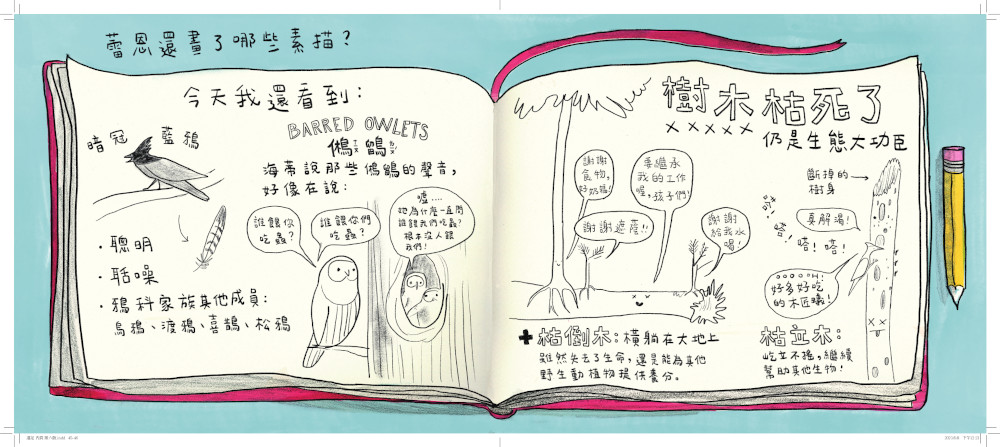 蕾恩還畫了哪些素描?
今天我還看到:
暗冠 藍鴉
・聰明
・聒噪
・鴉科家族其他成員:
烏鴉、渡鴉、喜鵲、松鴉
BARRED OWLETS
鵂鶹
海蒂說那些鵂鶹的聲音,
好像在說:
誰餵你
吃蟲?
誰餵你們
吃蟲?
噓....
她為什麼一直問
誰餵我們吃蟲?
根本沒人餵
我們!
樹木枯死了
×××××
仍是生態大功臣
謝謝
食物,
好奶媽!
要繼承
我的工作
喔,孩子們!
謝謝遮蔭!!
謝謝
給我水
喝!
斷掉的
樹身
嗒!
嗒!
嗒!
嗒!
真解渴!
好多好吃
的木匠蟻!
枯倒木:橫躺在大地上
雖然失去了生命,還是能為其他
野生動植物提供養分。
枯立木:
屹立不搖,繼續
幫助其他生物!